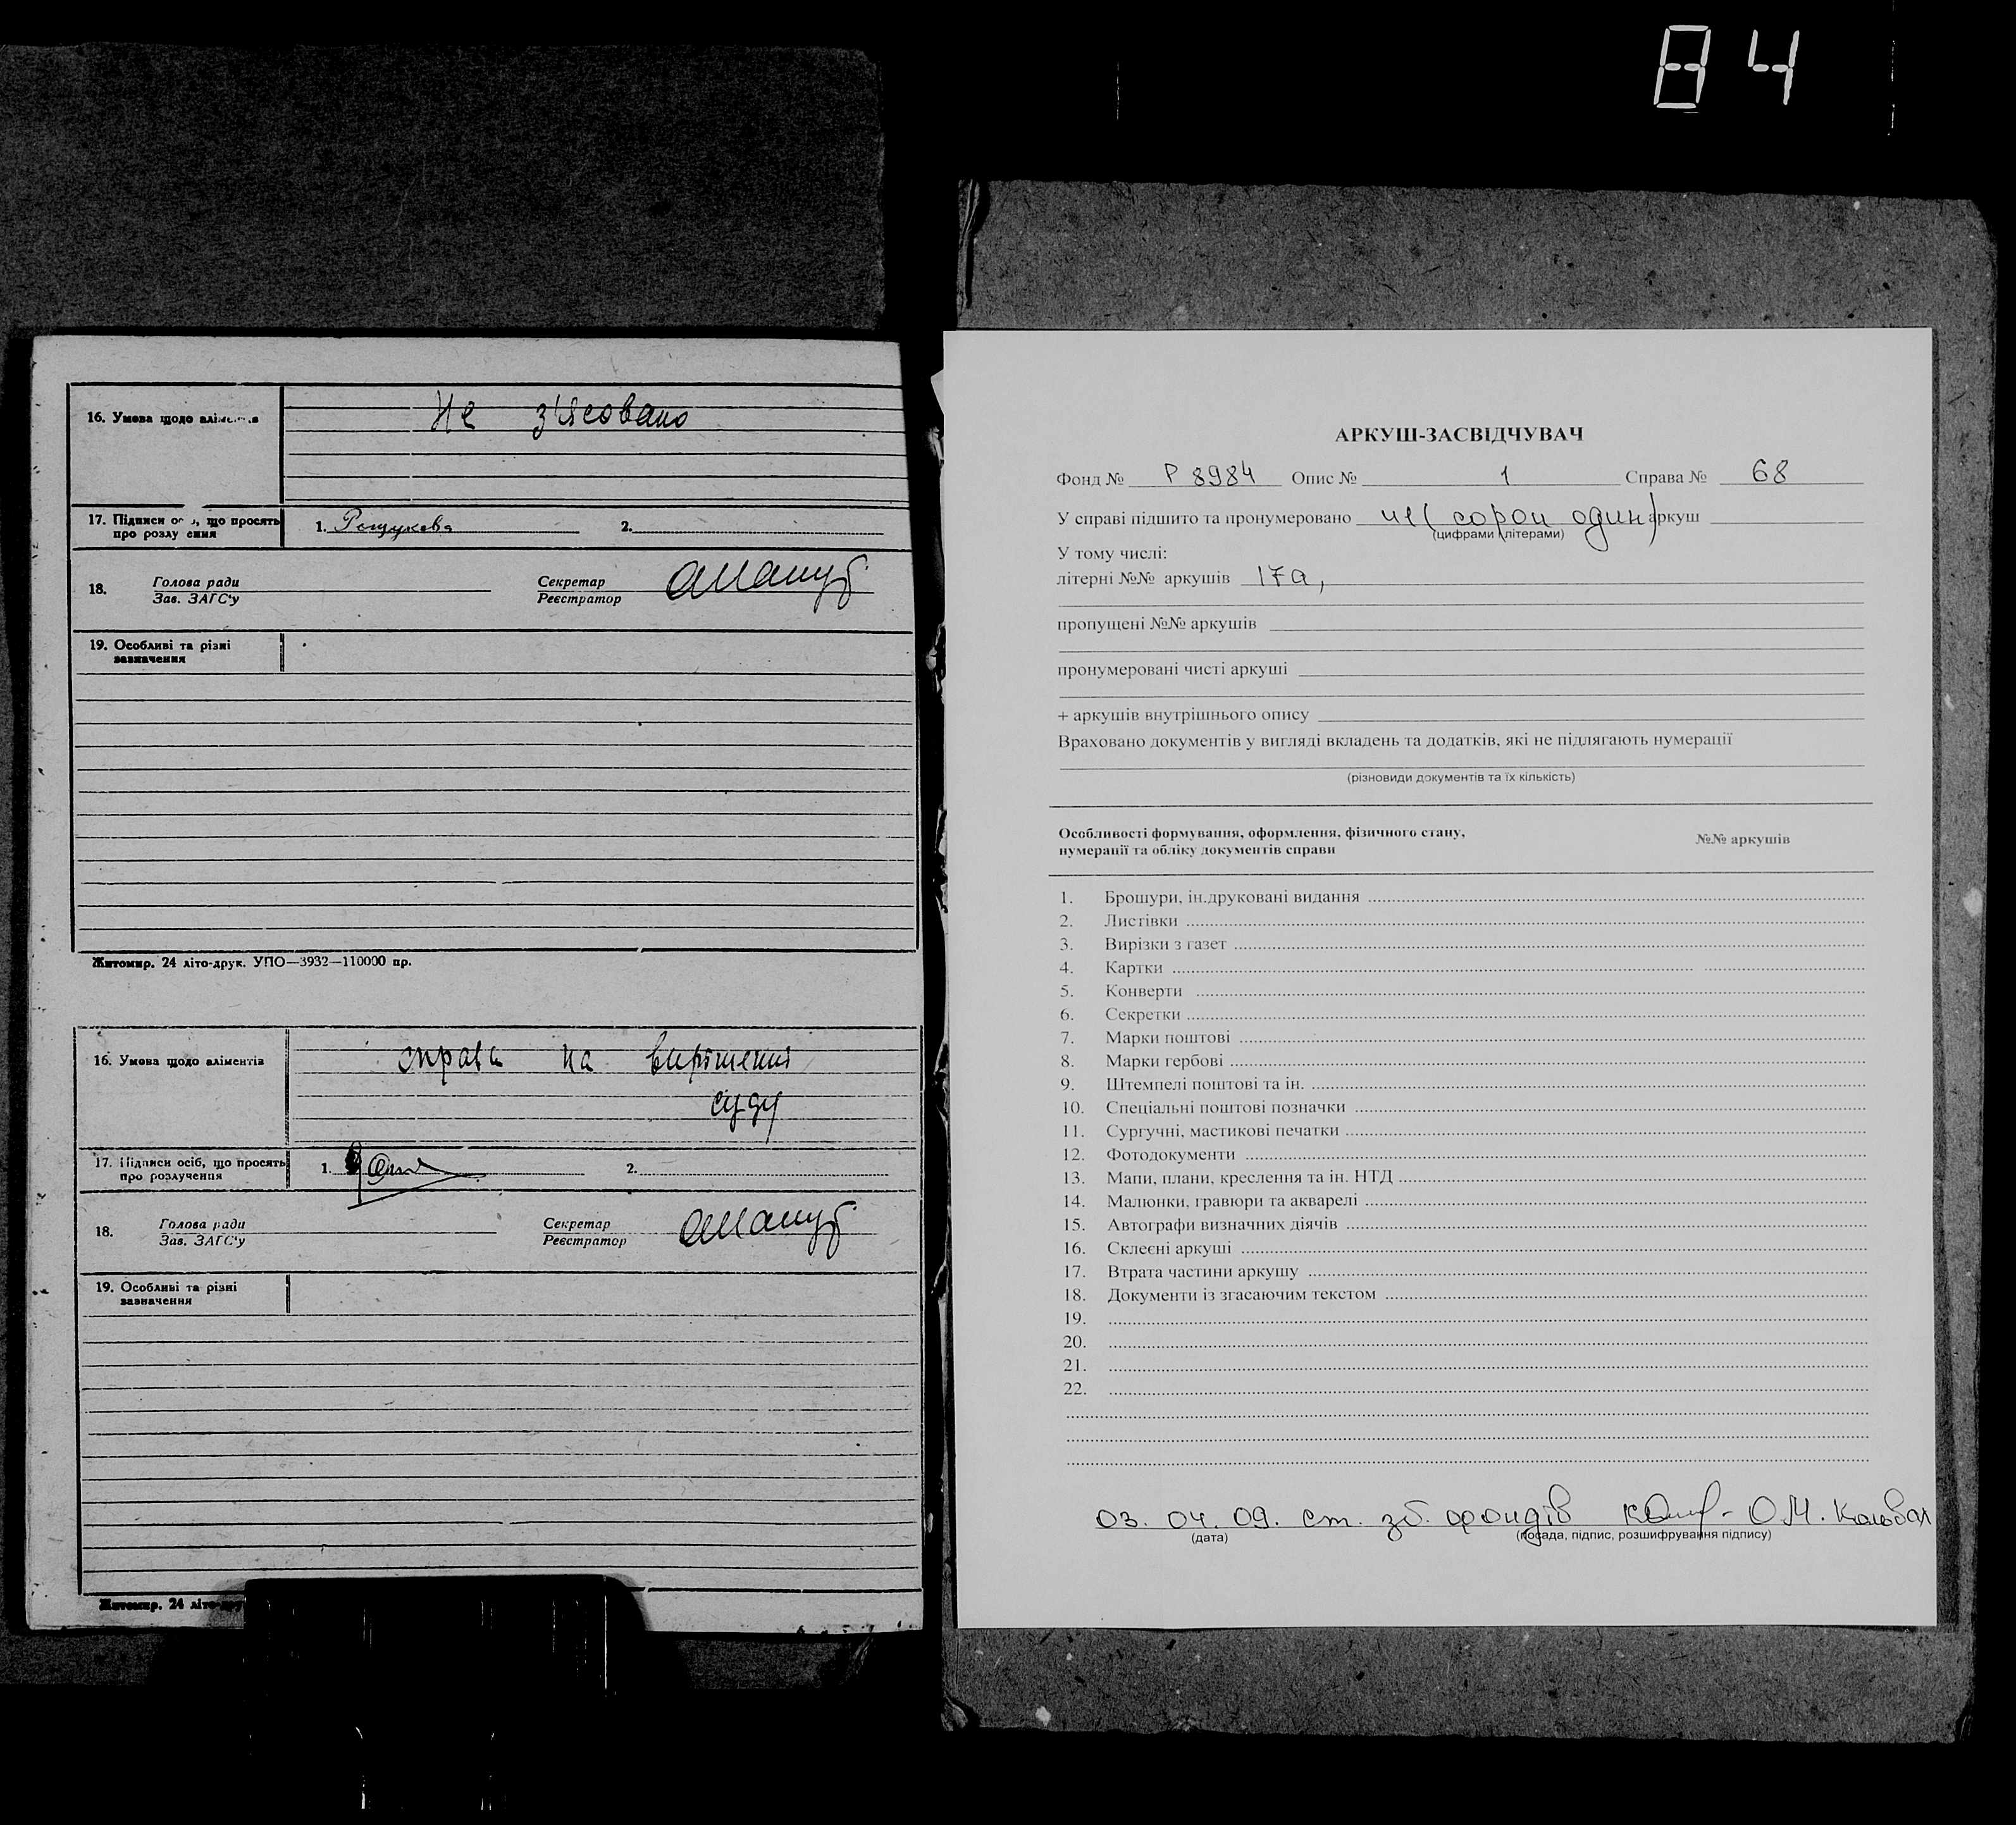 84
16. Умова щодо аліментів
Не з'ясовано
17. Підписи осіб, що просять про розлучення
1. 2.
18. Голова ради
Зав. ЗАГС'у
Секретар
Реєстратор
19. Особливі та різні
зазначення
Житомир. 24 літо-друк. УПО—3932—110000 пр.
16. Умова щодо аліментів
справа на вирішенні
суду
17. Підписи осіб, що просять
про розлучення
1. 2.
18. Голова ради
Зав. ЗАГС'у
Секретар
Реєстратор
19. Особливі та різні
зазначення
Житомир. 24 літо-дру
АРКУШ-ЗАСВІДЧУВАЧ
Фонд № Р 8984 Опис № 1 Справа № 68
У справі підшито та пронумеровано 41 (сорок один) аркуш
(цифрами і літерами)
У тому числі:
літерні №№ аркушів 17а,
пропущені №№ аркушів
пронумеровані чисті аркуші
+ аркушів внутрішнього опису
Враховано документів у вигляді вкладень та додатків, які не підлягають нумерації
(різновиди документів та їх кількість)
Особливості формування, оформлення, фізичного стану, №№ аркушів
нумерації та обліку документів справи
1. Брошури, ін.друковані видання
2. Листівки
3. Вирізки з газет
4. Картки
5. Конверти
6. Секретки
7. Марки поштові
8. Марки гербові
9. Штемпелі поштові та ін.
10. Спеціальні поштові позначки
11. Сургучні, мастикові печатки
12. Фотодокументи
13. Мапи, плани, креслення та ін. НТД
14. Малюнки, гравюри та акварелі
15. Автографи визначних діячів
16. Склеєні аркуші
17. Втрата частини аркушу
18. Документи із згасаючим текстом
19.
20.
21.
22.
03. 04. 09. ст. зб. фондів О.М.
(дата) (посада, підпис, розшифрування підпису)